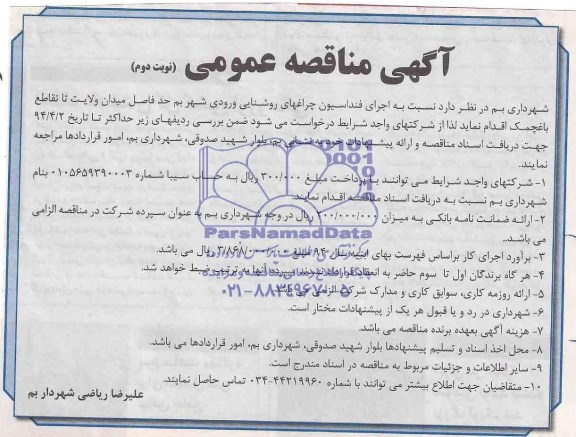 آگهی مناقصه عمومی (نوبت دوم)
شهرداری بم در نظر دارد نسبت به اجرای فنداسیون چراغهای روشنایی ورودی شهر بم حد فاصل میدان ولایت تا تقاطع
باغچمک اقدام نماید لذا از شرکتهای واجد شرایط درخواست می شود ضمن بررسی ردیفهای زیر حداکثر تا تاریخ ۹۴/۴/۲
جهت دریافت اسناد مناقصه و ارائه پیشنهادات خود به نشانی بم، بلوار شهید صدوقی، شهرداری بم، امور قراردادها مراجعه
نمایند.
۱- شرکتهای واجد شرایط می توانند با پرداخت مبلغ ۳۰۰/۰۰۰ ریال به حساب سیبا شماره ۰۱۰۵۶۵۹۳۹۰۰۰۳ بنام
شهرداری بم نسبت به دریافت اسناد مناقصه اقدام نمایند.
۲- ارائه ضمانت نامه بانکی به میزان ۲۰۰/۰۰۰/۰۰۰ ریال در وجه شهرداری بم به عنوان سپرده شرکت در مناقصه الزامی
می باشد.
۳- برآورد اجرای کار براساس فهرست بهای ابنیه سال ۹۴ مبلغ ریال می باشد.
۴- هر گاه برندگان اول تا سوم حاضر به انعقاد قرارداد نشدند سپرده آنها به ترتیب ضبط خواهد شد.
۵- ارائه روزمه کاری، سوابق کاری و مدارک شرکت الزامی می باشد.
۶- شهرداری در رد و یا قبول هر یک از پیشنهادات مختار است.
۷- هزینه آگهی بعهده برنده مناقصه می باشد.
۸- محل اخذ اسناد و تسلیم پیشنهادها بلوار شهید صدوقی، شهرداری بم، امور قراردادها می باشد.
۹- سایر اطلاعات و جزئیات مربوط به مناقصه در اسناد مندرج است.
۱۰- متقاضیان جهت اطلاع بیشتر می توانند با شماره ۴۴۲۱۹۹۶۰-۰۳۴ تماس حاصل نمایند.
علیرضا ریاضی شهردار بم
ParsNamadData
۰۲۱-۸۸۳۴۹۶۷۰-۵